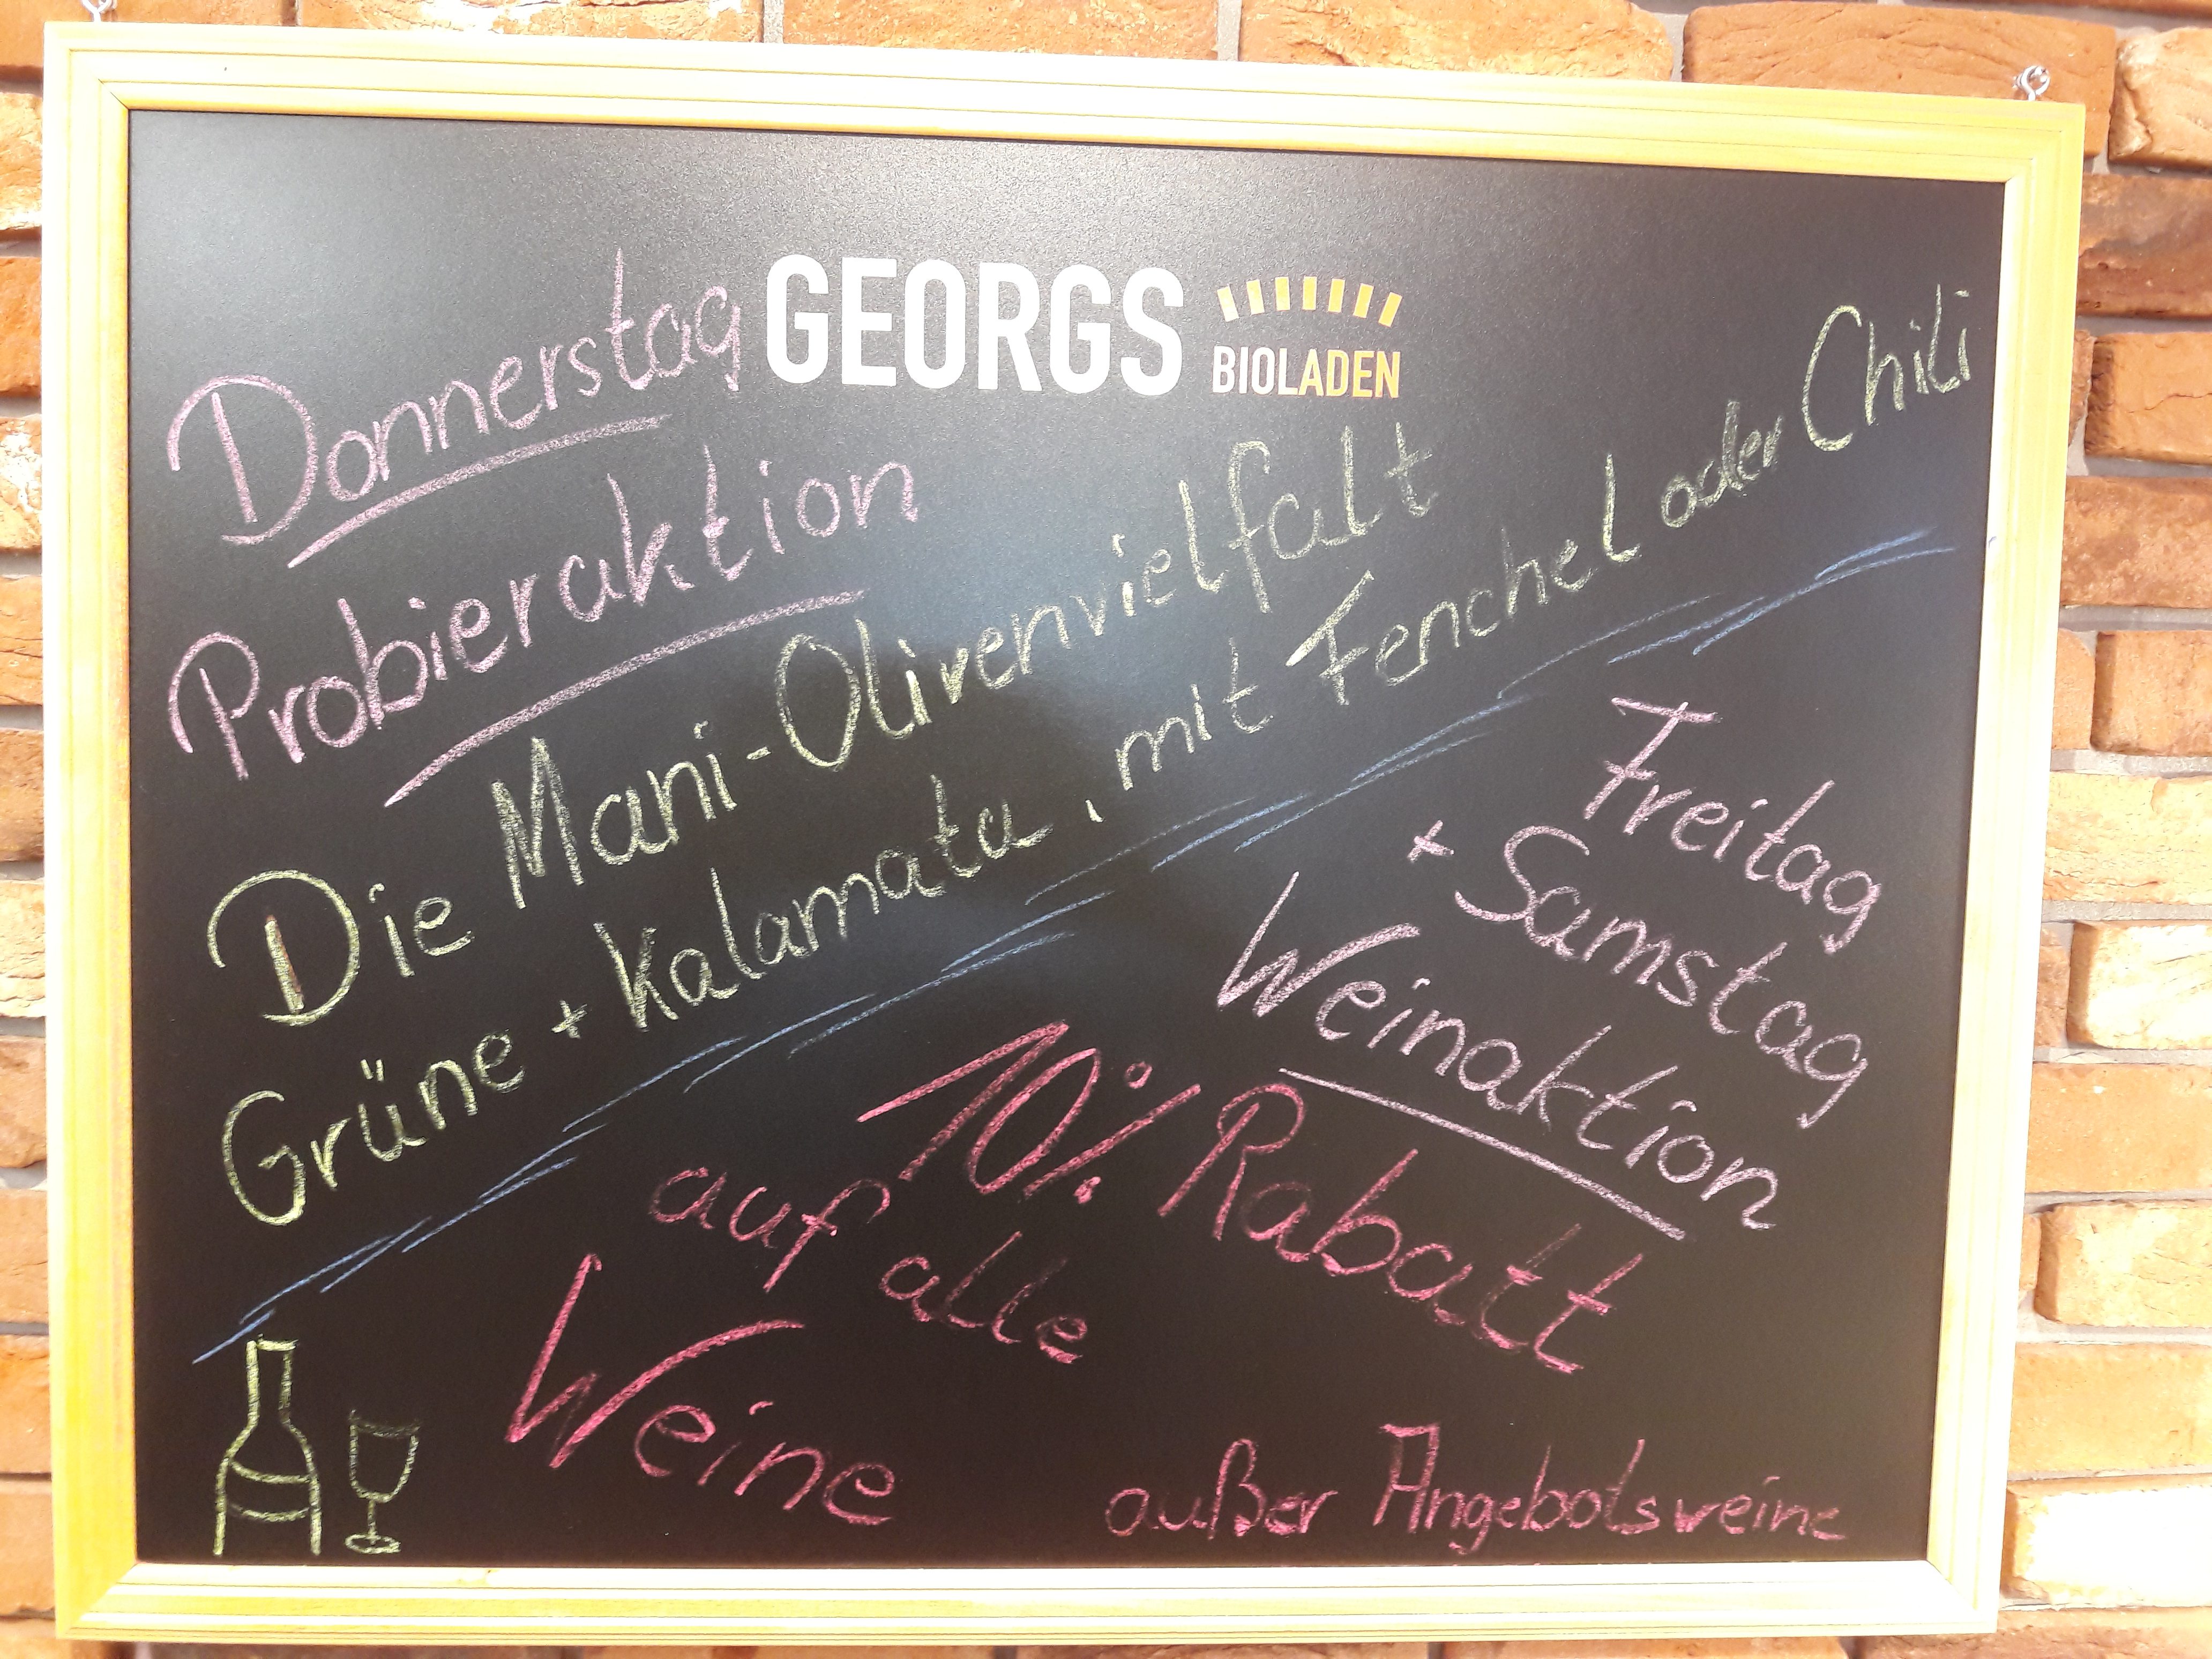 GEORGS BIOLADEN
Donnerstag
Probieraktion
Die Mani-Olivenvielfalt
Grüne + Kalamata, mit Fenchel oder Chili
Freitag
+ Samstag
Weinaktion
10% Rabatt
auf alle
Weine
außer Angebotsweine